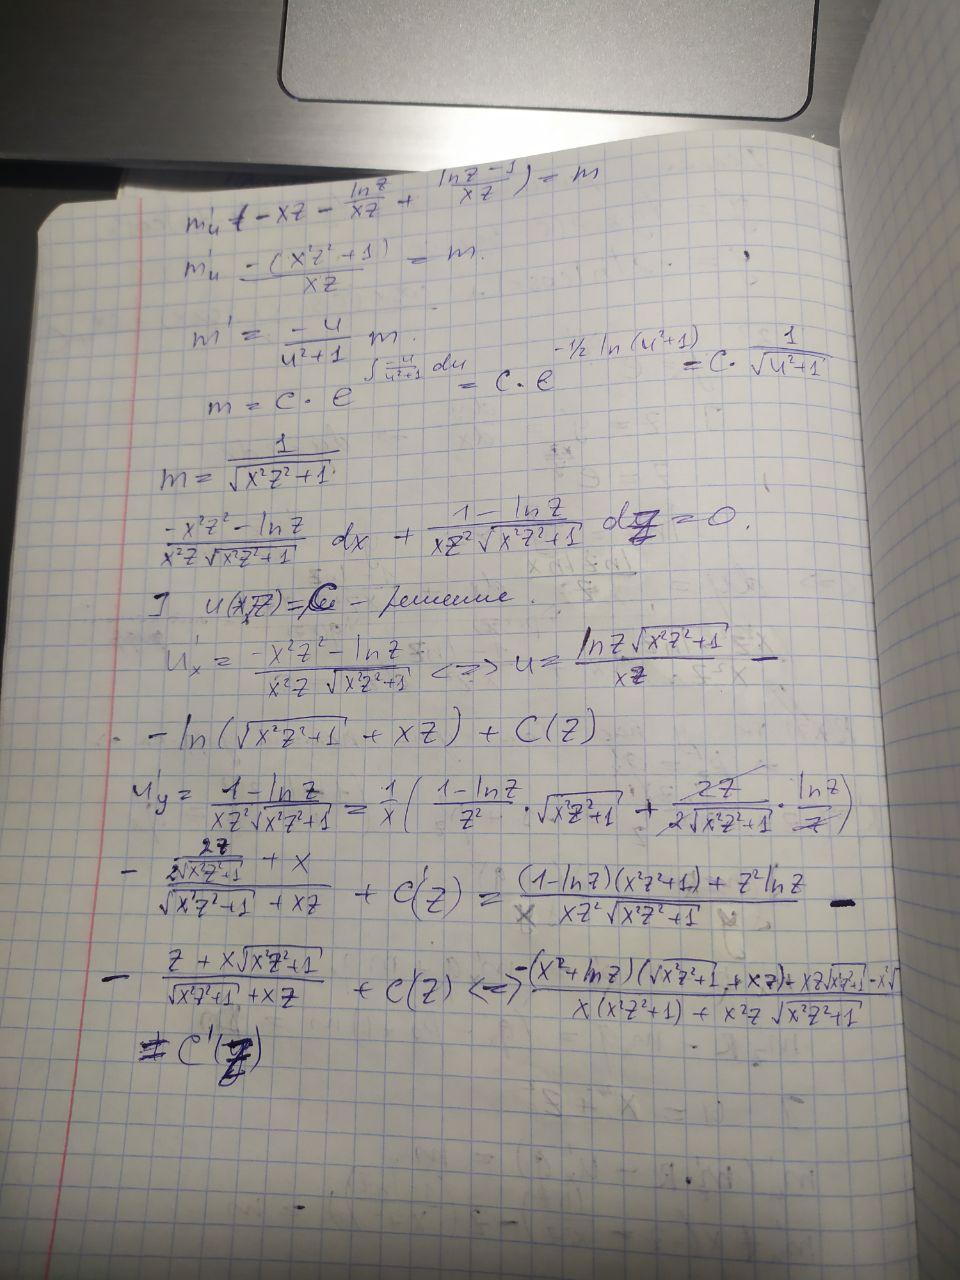 m'_u (-xz - \frac{ln z}{xz} + \frac{ln z - 1}{xz}) = m
m'_u \frac{-(x²z²+1)}{xz} = m.
m' = \frac{-u}{u²+1} m.
m = c · e^{∫\frac{-u}{u²+1} du} = c · e^{-1/2 ln(u²+1)} = c · \frac{1}{\sqrt{u²+1}}
m = \frac{1}{\sqrt{x²z²+1}}.
\frac{-x²z² - ln z}{x²z\sqrt{x²z²+1}} dx + \frac{1 - ln z}{xz²\sqrt{x²z²+1}} dz = 0.
] u(x,z) = C - решение.
u'_x = \frac{-x²z² - ln z}{x²z\sqrt{x²z²+1}} <=> u = \frac{ln z\sqrt{x²z²+1}}{xz} -
- ln(\sqrt{x²z²+1} + xz) + C(z)
u'_y = \frac{1 - ln z}{xz²\sqrt{x²z²+1}} = \frac{1}{x}(\frac{1 - ln z}{z²} · \sqrt{x²z²+1} + \frac{2z}{2\sqrt{x²z²+1}} · \frac{ln z}{z})
- \frac{\frac{2z}{2\sqrt{x²z²+1}} + x}{\sqrt{x²z²+1} + xz} + C'(z) = \frac{(1-ln z)(x²z²+1) + z² ln z}{xz²\sqrt{x²z²+1}} -
- \frac{z + x\sqrt{x²z²+1}}{\sqrt{x²z²+1} + xz} + C'(z) <=> \frac{-(x²+ln z)(\sqrt{x²z²+1} + xz) + xz\sqrt{x²z²+1} - x²√}{x(x²z²+1) + x²z\sqrt{x²z²+1}}
= C'(z)